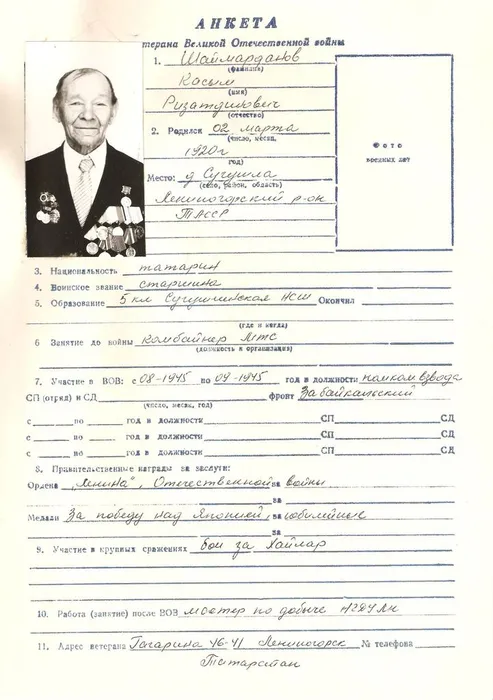 АНКЕТА
терана Великой Отечественной войны
1. Шаймарданов
(фамилия)
Касым
(имя)
Ризатдинович
(отчество)
2. Родился 02 марта
(число, месяц,
1920г
год)
Место: д Сугушла
(село, район, область)
Лениногорский р-он
ТАССР
Фото
военных лет
3. Национальность татарин
4. Воинское звание старшина
5. Образование 5 кл Сугушлинская НСШ Окончил
(где и когда)
6 Занятие до войны комбайнер МТС
(должность и организация)
7. Участие в ВОВ: с 08-1945 по 09-1945 год в должности помком взвода
СП (отряд) и СД фронт Забайкальский
(число, месяц, год)
с по год в должности СП СД
с по год в должности СП СД
с по год в должности СП СД
8. Правительственные награды за заслуги:
Ордена „Ленина", Отечественной за войны
за
Медали За победу над Японией, за юбилейные
за
9. Участие в крупных сражениях бои за Хайлар
10. Работа (занятие) после ВОВ мастер по добыче НГДУ ЛН
11. Адрес ветерана Гагарина 46-41 Лениногорск № телефона
Татарстан